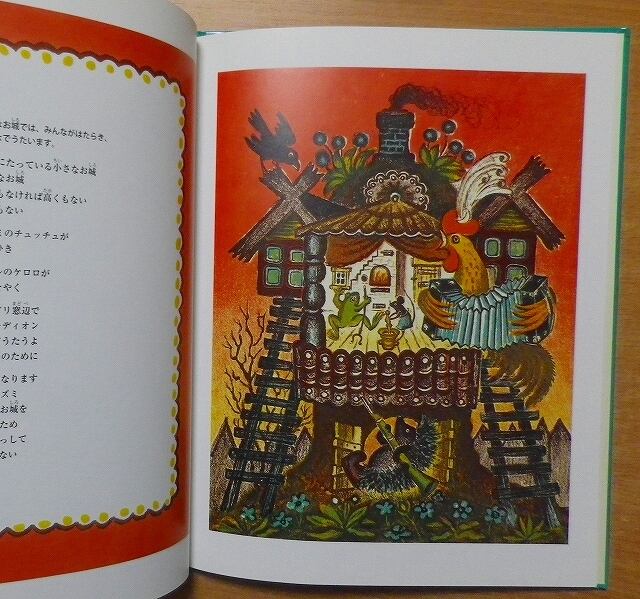 なお城では、みんながはたらき、
でうたいます。
にたっている小さなお城
なお城
もなければ高くもない
もない
のチュッチュが
ひき
のケロロが
やく
リ窓辺で
ーディオン
うたうよ
のために
なります
ズミ
お城を
ため
っして
ない